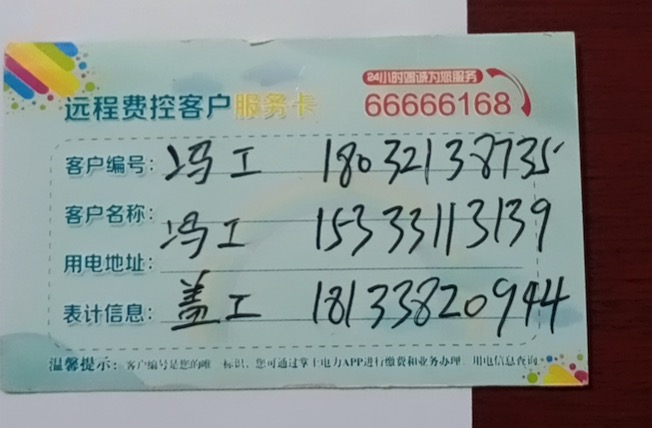 24小时竭诚为您服务
远程费控客户服务卡 66666168
客户编号: 冯工 18032138735
客户名称: 冯工 15333113139
用电地址:
表计信息: 盖工 18133820944
温馨提示: 客户编号是您的唯一标识, 您可通过掌上电力APP进行缴费和业务办理、用电信息查询。